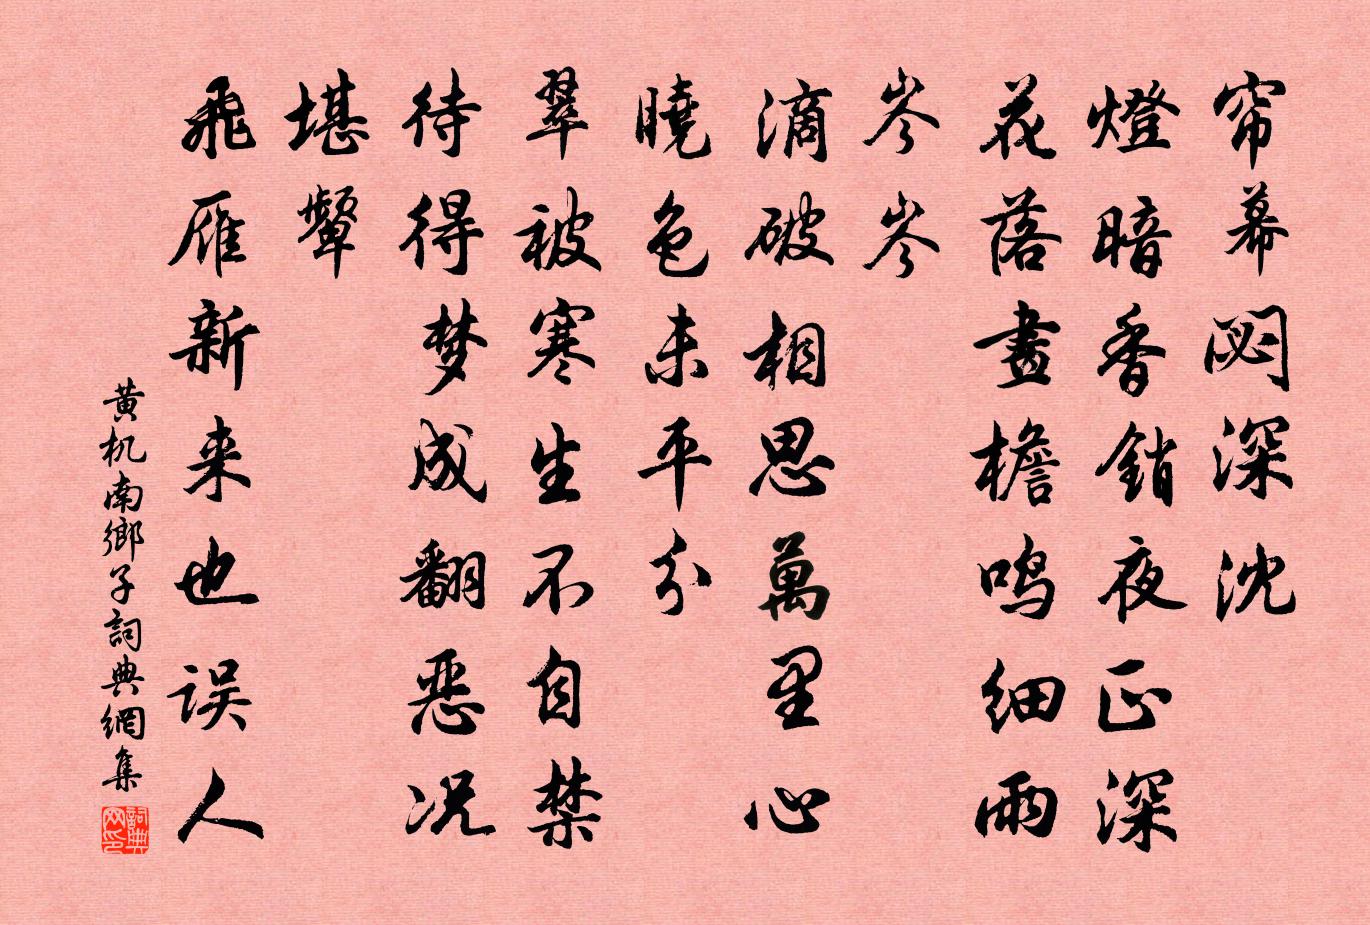 帘幕闷深沈
燈暗香銷夜正深
花落畫檐鸣细雨
岑岑
滴破相思萬里心
曉色未平分
翠被寒生不自禁
待得梦成翻恶况
堪颦
飛雁新来也误人
黄机南鄉子詞典網集
詞典网印